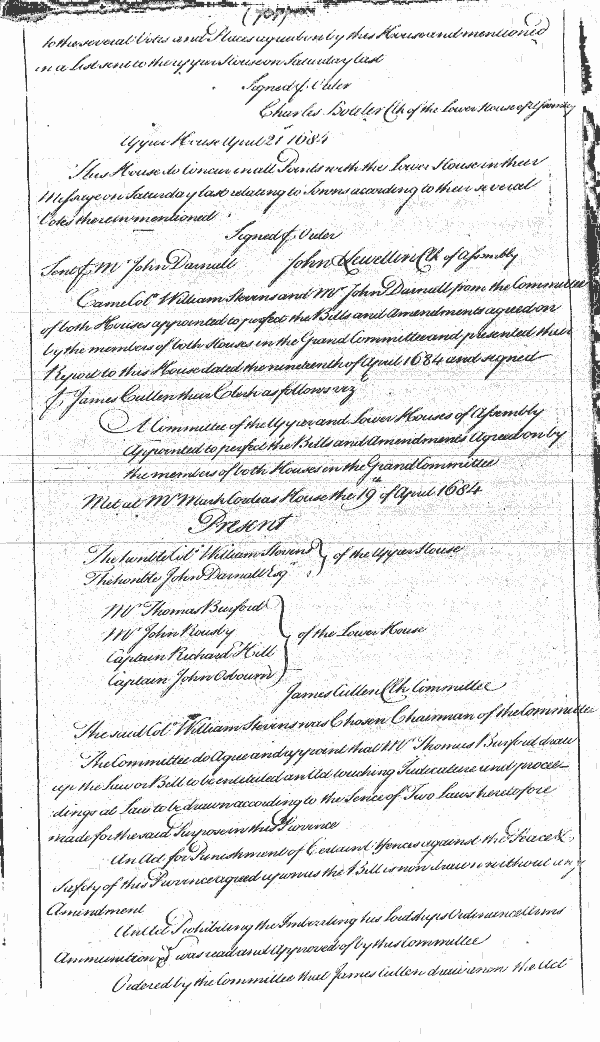 (707)
to the several Votes and Places agreed on by this House and mentioned
in a List sent to the upper House on Saturday last
Signed ꝑ Order
Charles Boteler Clk of the Lower House of Assembly
Upper House April 21 1684
This House do Concur in all Points with the Lower House in their
Message on Saturday last relating to Towns according to their several
Votes therein mentioned
Signed ꝑ Order
Sent ꝑ Mr John Darnall John Llewellin Clk of Assembly
Came Col William Stevens and Mr John Darnall from the Committee
of both Houses appointed to perfect the Bills and Amendments agreed on
by the members of both Houses in the Grand Committee and presented their
Report to this House dated the nineteenth of April 1684 and signed
ꝑ James Cullen their Clerk as follows viz
A Committee of the Upper and Lower Houses of Assembly
Appointed to perfect the Bills and Amendments Agreed on by
the members of both Houses in the Grand Committee
Met at Mr Mark Cordeas House the 19th of April 1684
Present
The honble Col William Stevens
The honble John Darnall Esqr
of the Upper House
Mr Thomas Burford
Mr John Rousby
Captain Richard Hill
Captain John Osbourn
of the Lower House
James Cullen Clk Committee
The said Col William Stevens was Chosen Chairman of the Committee
The Committee do Agree and appoint that Mr Thomas Burford draw
up the Law or Bill to be entituled an Act touching Judicature and procee-
dings at Law to be drawn according to the Sence of Two Laws heretofore
made for the said Purpose in this Province
An Act for Punishment of Certaine Offences against the Peace &
Safety of this Province agreed upon as the Bill is now drawn without any
Amendment
An Act Prohibiting the Imbezling his Lordships Ordinance Arms
Ammunition &c was read and Approved of by this Committee
Ordered by the Committee that James Cullen draw anon the Act